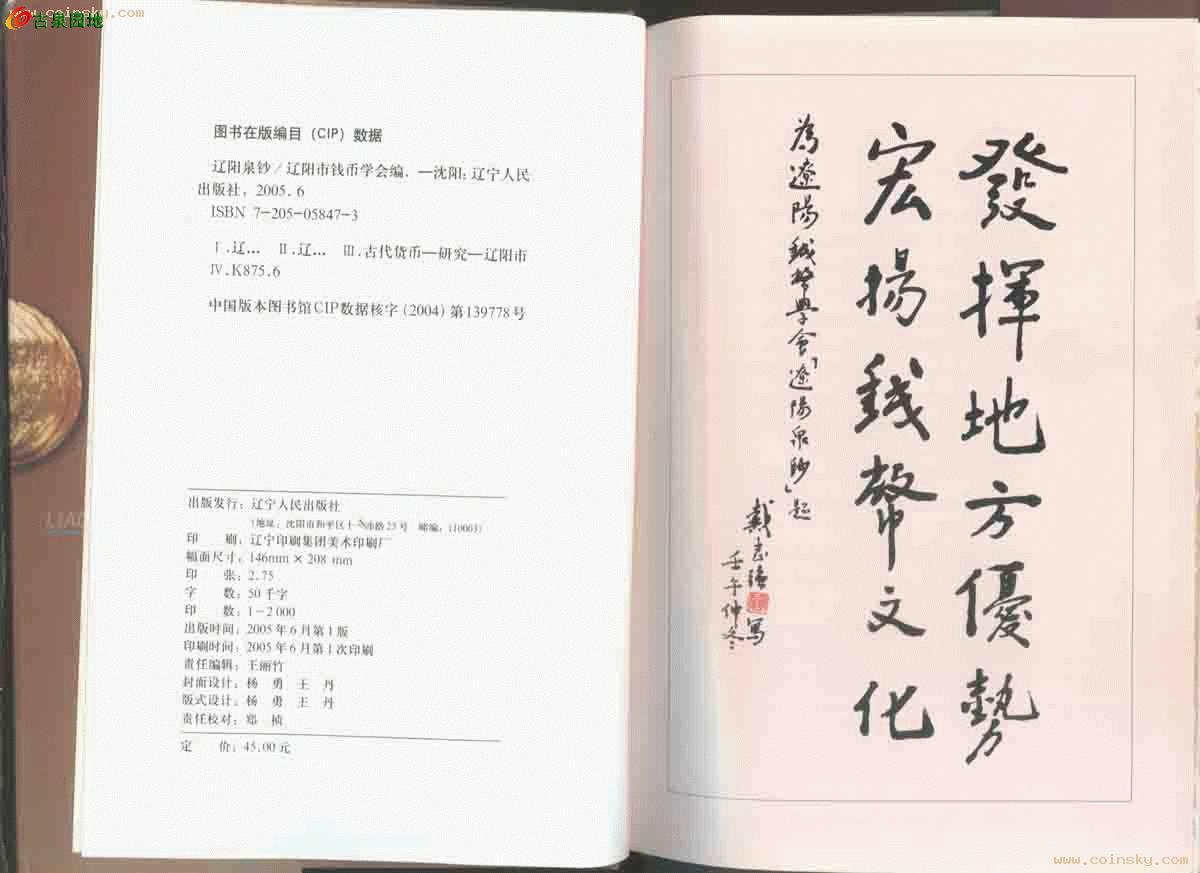 www.coinsky.com
古泉园地
图书在版编目（CIP）数据
辽阳泉钞／辽阳市钱币学会编．—沈阳：辽宁人民
出版社，2005.6
ISBN 7-205-05847-3
Ⅰ.辽… Ⅱ.辽… Ⅲ.古代货币—研究—辽阳市
Ⅳ.K875.6
中国版本图书馆CIP数据核字(2004)第139778号
出版发行：辽宁人民出版社
（地址：沈阳市和平区十一纬路25号 邮编：110003）
印 刷：辽宁印刷集团美术印刷厂
幅面尺寸：146mm×208mm
印 张：2.75
字 数：50千字
印 数：1-2000
出版时间：2005年6月第1版
印刷时间：2005年6月第1次印刷
责任编辑：王丽竹
封面设计：杨 勇 王 丹
版式设计：杨 勇 王 丹
责任校对：郑 桢
定 价：45.00元
LIAO
發揮地方優勢
宏揚錢幣文化
為遼陽錢幣學會「遼陽泉鈔」題
戴志强寫
壬午仲冬
www.coinsky.com